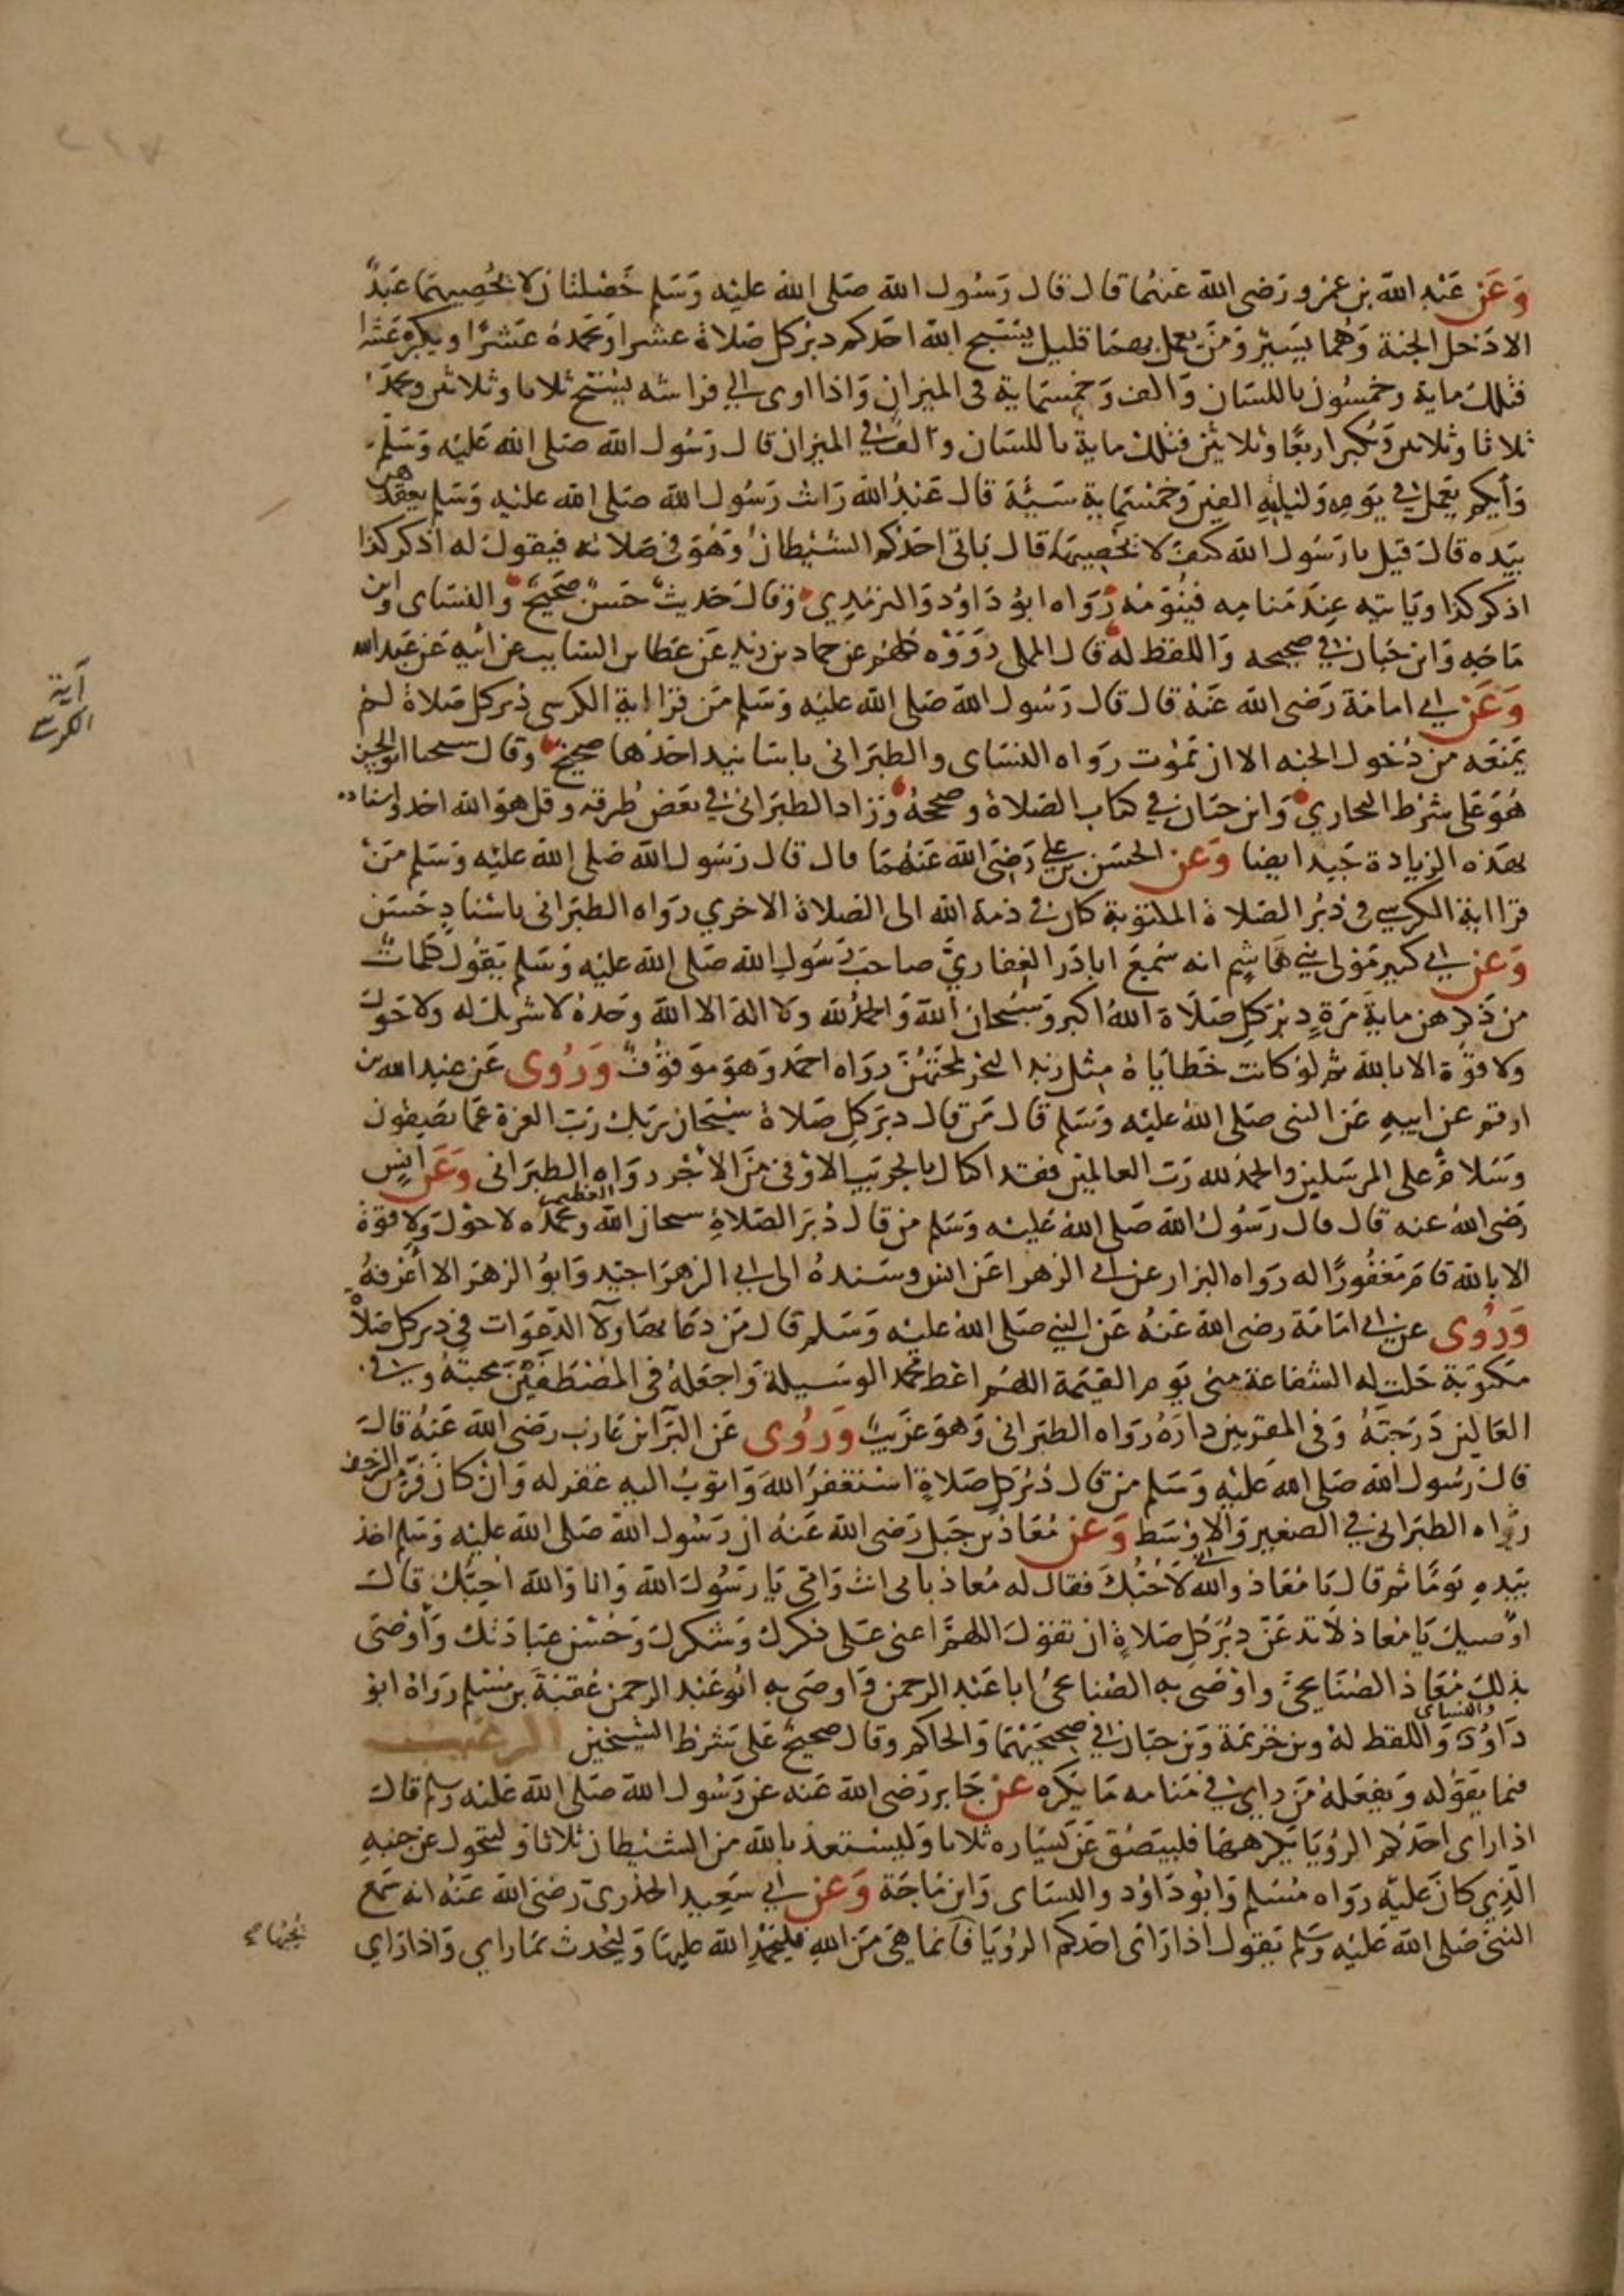 ٢١٧
وَعَن عَبْدِ اللّه بن عمرو رَضى اللّه عَنهُما قال قال رَسُول اللّه صَلى اللّه عليه وَسَلم خَصْلتان لا يُحْصِيهمَا عَبدٌ
الا دَخل الجنة وَهُما يَسيرٌ وَمَن يعمل بهمَا قليل يسَبح اللّه احَدكم دبر كل صَلاة عشرا ويَحمَدهُ عَشرًا ويكبره عَشرا
فتلك ماية وخمسُون باللسَان وَالف وَخمسَماية فى الميزان وَاذا اوى الي فراشه يسبح ثلاثا وثلاثين ويحمَد
ثلاثا وثلاثين وَيكبر اربعًا وثلاثين فتلك مايةٌ باللسَان والف في الميزان قال رَسُول اللّه صَلى اللّه عَليْه وَسَلم
وَأيكم يَعمل في يَومِه وَليلتِهِ الفين وَخمسَماية سَيئَة قال عَبْدُ اللّه رَايت رَسُول اللّه صَلى اللّه عليه وَسَلم يعقدهن
بيَده قال قيل يا رَسُول اللّه كيف لا نحْصِيهَا قال يَاتى احَدَكم الشيْطانُ وَهُوَ في صَلاته فيقول له اذكر كذا
اذكر كذا ويَاتيه عِندَ مَنامِه فينوّمُه رَوَاه ابوُ دَاوُد وَالترمذِي وَقال حَديث حَسَنٌ صَحيحٌ وَالنسَاى وابن
مَاجَه وَابن حبَان في صحيحه وَاللفظ له قال المملى رَوَوْه كلهم عن حماد بن زيد عَن عَطا بن السَايب عن ابيه عَن عَبد اللّه
وَعَن ابي امامَة رَضى اللّه عَنْه قال قال رَسُول اللّه صَلى اللّه عليه وَسَلم مَن قرا اية الكرسى دُبر كل صَلاة لم
يمنَعه من دُخول الجنه الا ان يَمُوت رَوَاه النسَاى والطبَرانى باسَانيد احَدُها صحيح وَقال شيخنا ابو الحسن
هُوَ عَلى شرْط البخاري وَابن حبَان في كتاب الصَلاة وصححَهُ وَزاد الطبَرانى في بعَض طُرقه وقل هوَ اللّه احد واسناده
بهذه الزيادة جَيد ايضا وَعَن الحسَن بن علي رَضىَ اللّه عَنهُمَا قال قال رَسُول اللّه صَلى اللّه عليْه وَسَلم مَن
قرا اية الكرسِي في دبُر الصَلاة المكتوبَة كان فى ذمة اللّه الى الصَلاة الاخري رَوَاه الطبَرانى باسْنادٍ حَسَن
وَعَن ابي كثير مَوْلى بني هَاشِم انه سَمعَ ابا ذَر الغِفاريَّ صاحبَ رَسُول اللّه صَلى اللّه عليْه وَسَلم يَقُول كلمات
من ذَكرهن مايَة مَرةٍ دبرَ كل صَلاَة اللّهُ اكبر وَسُبْحان اللّه وَالحَمْدُ للّه ولا اله الا اللّه وَحدَهُ لا شريك له ولا حَول
ولا قوّة الا باللّه ثم لوْ كانت خَطايَاهُ مِثل زبد البَحر لمحَتهُنَّ رواه احمَد وَهوَ موَقوُفٌ وَرُوى عَن عَبد اللّه بن
ارقم عن ابيهِ عَن النبى صَلى اللّهُ عليْه وَسَلم قال مَن قال دبَر كل صَلاة سبْحان ربك رَبّ العزة عَمّا يصِفون
وَسَلامٌ على المرسَلين والحمْد للّه رَب العَالمين فقد اكتال بالجريب الاوْفى مِنَ الأجْر روَاه الطبَرانى وَعَن انِس
رَضى اللّهُ عنه قال قال رَسُول اللّه صَلى اللّهُ عَليْه وَسَلم من قال دُبَر الصَلاةِ سبحان اللّه العظيم وبحمده لا حَوْل وَلا قوّة
الا باللّه قامَ مَغفُورًا له رَوَاه البزار عن ابى الزهرا عَن انس وسَندهُ الى ابي الزهرَا جَيد وَابوُ الزهرَا لا أعْرفهُ
وَرُوى عن ابى امَامَة رضى اللّه عَنهُ عَن النبي صَلى اللّه عليْه وَسَلم قال مَن دعَا بهؤلآ الدعَوَات فى دبر كل صَلاة
مَكتوبَة حَلت له الشفاعَة مِنى يَوم القيمَة اللّهُم اعْط محمد الوسَيلة وَاجعَلهُ فى المُصْطَفيْن محبتَهُ وفى
العَالين دَرَجتهُ وَفى المقربين دارَهُ رَوَاه الطبَرانى وَهوَ غَريبٌ وَرُوى عَن البَرَا بن عَازب رَضى اللّه عَنْهُ قال
قال رَسُول اللّه صَلى اللّهُ عَليْه وَسَلم مَن قال دُبُر كلِ صَلاةٍ استغفرُ اللّهَ وَاتوبُ اليهِ غفر له وَانْ كان فَرّ من الزحف
رَوَاه الطبَرانى في الصغير وَالاوْسَط وَعَن مُعَاذ بن جَبل رَضى اللّه عَنهُ ان رَسُول اللّهَ صَلى اللّه عليْه وَسَلم اخذ
بيَدِهِ يَومًا ثم قال يَا مُعَاذ واللّه انى لاَحُبُّكَ فقال له مُعَاذ بابى انت وَامى يَا رسَوُل اللّه وَانا وَاللّه احِبُّك قال
اوُصيك يَا مُعاذ لا تدعَنّ دبُر كل صَلاةٍ ان تقوَل اللّهمَّ اعنى عَلى ذكرك وَشكرك وَحُسْن عبَادَتك وَأوْصَى
بذلِكَ مُعَاذ الصُنَابحىَّ واوْصَى به الصُنابحىُ ابا عَبْد الرحمن وَاوصَى به ابُو عَبْد الرحمن عُقبَة بن مُسْلم رَوَاهُ ابوُ
دَاوُدَ وَالنسَاى وَاللفظ لهُ وبن خزيمَة وَبن حبَان في صحيحيْهمَا وَالحاكم وقال صَحيحٌ عَلى شرْط الشيْخين الترغيب
فيما يَقوُله وَيفعَلهُ مَن راي في مَنامه مَا يَكره عَن جَابر رَضى اللّه عَنه عَن رَسُول اللّه صَلى اللّه عَليْه وسلم قال
اذا راى احَدكم الرؤيَا يَكرههَا فليبَصُق عَن يسَاره ثلاثا وَليسْتعذ باللّه من الشيْطان ثلاثا وليتحول عن جنبِهِ
الَذِي كان عَليْه رَوَاه مُسْلم وَابوُ دَاوُد والنسَاى وَابن مَاجَة وَعَن ابي سَعيد الخدْرى رَضى اللّه عَنهُ انه سَمعَ
النبىَ صَلى اللّه عَليْه وسَلم يَقول اذا رَاى احَدكم الرُؤيَا يحبها فانما هىَ منَ اللّهِ فليَحمَدِ اللّه عليهَا وَليُحَدث بمَا راي وَاذا رَاي
آية
الكرسي
يُحِبُّهَا صح